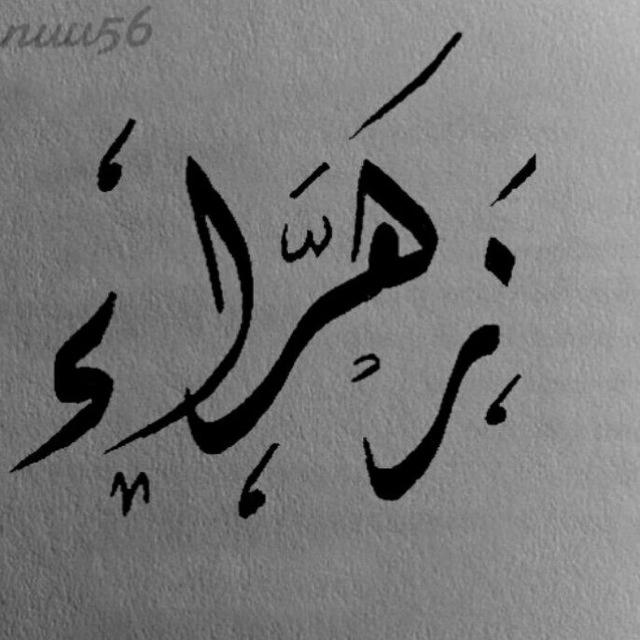 nuu56
زهراء